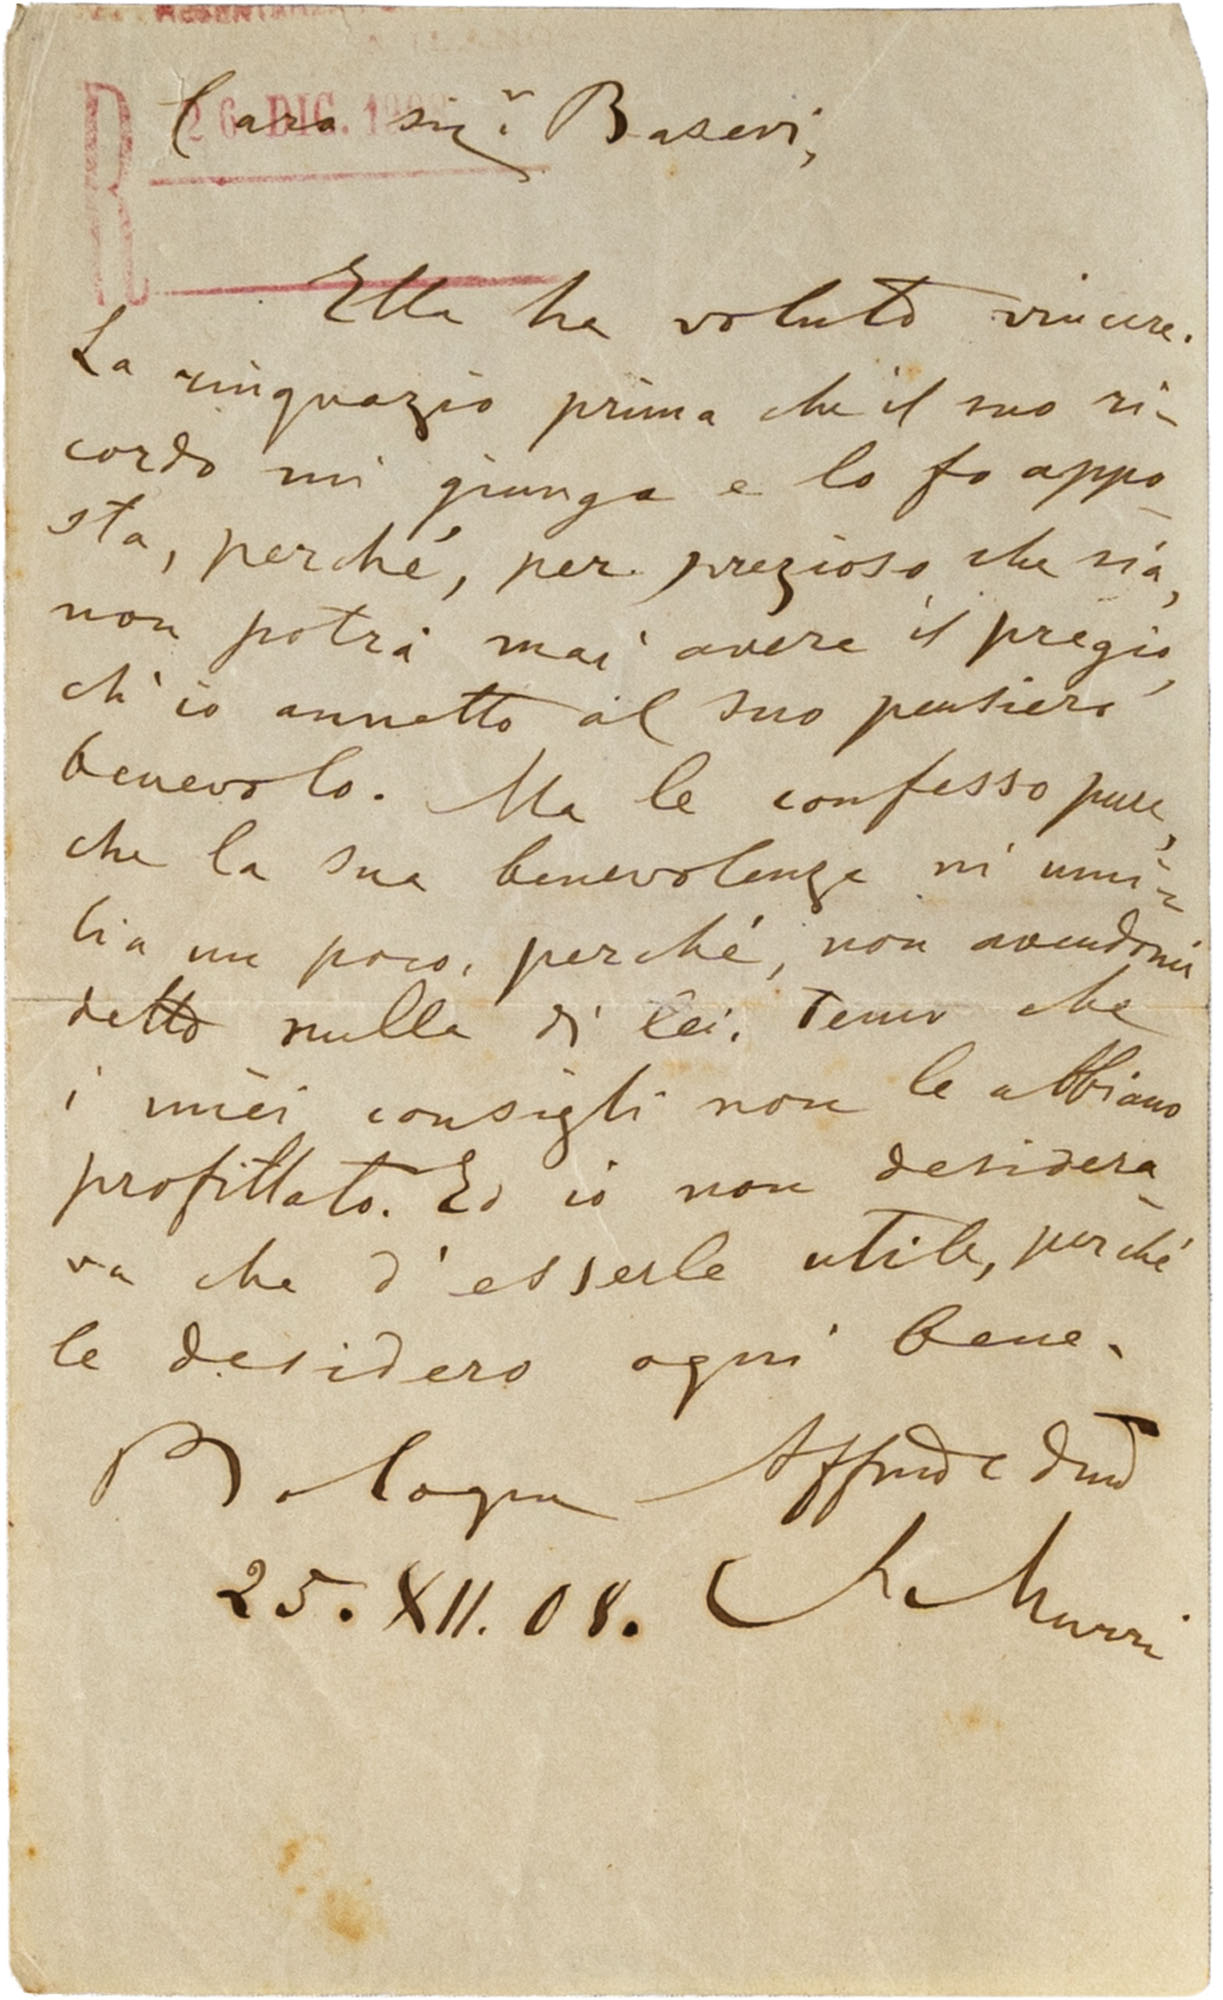 26 DIC. 190
R
Cara sig.ª Basevi,
Ella ha voluto vincere.
La ringrazio prima che il suo ri-
cordo mi giunga e lo fo appo-
sta, perché, per prezioso che sia,
non potrà mai avere il pregio,
ch'io annetto al suo pensiero
benevolo. Ma le confesso pure,
che la sua benevolenza mi umi-
lia un poco, perché, non avendomi
detto nulla di lei. Temo che
i miei consigli non le abbiano
profittato. Ed io non desidera-
va che d'esserle utile, perché
le desidero ogni bene.
Bologna
25. XII. 08. Murri